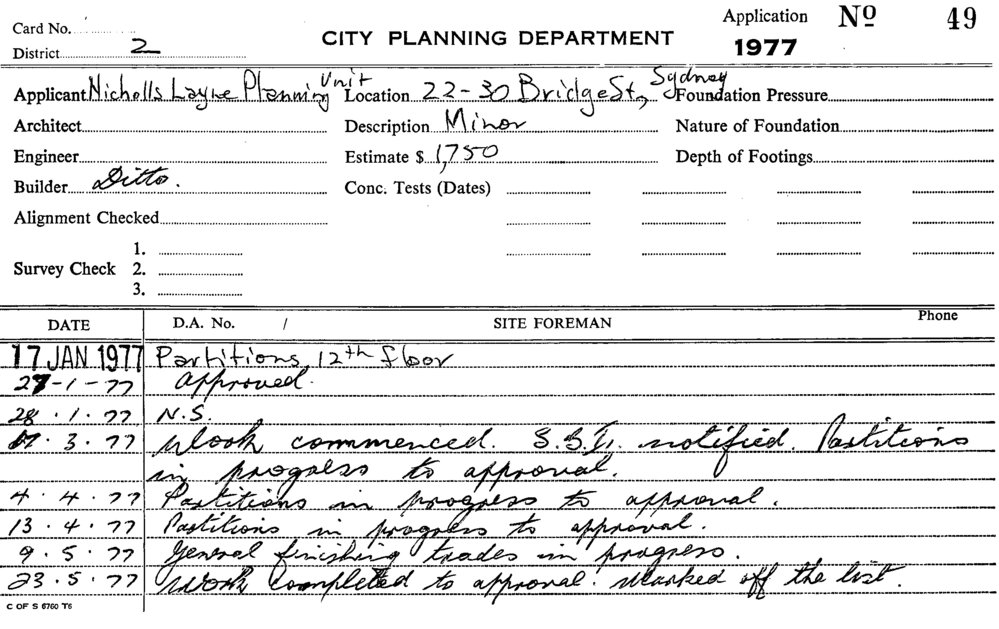 Card No.
District 2
CITY PLANNING DEPARTMENT
Application No 49
1977
Applicant Nicholls Layne Planning Unit Location 22-30 Bridge St, Sydney Foundation Pressure
Architect Description Minor Nature of Foundation
Engineer Estimate $ 1,750 Depth of Footings
Builder Ditto. Conc. Tests (Dates)
Alignment Checked
1.
Survey Check 2.
3.
DATE D.A. No. / SITE FOREMAN Phone
17 JAN 1977 Partitions, 12th floor
27-1-77 Approved.
28.1.77 N.S.
3.77 Work commenced. notified. Partitions
in progress to approval.
4.4.77 Partitions in progress to approval.
13.4.77 Partitions in progress to approval.
9.5.77 General finishing trades in progress.
23.5.77 Work completed to approval. Marked off the list.
C OF S 6760 T6